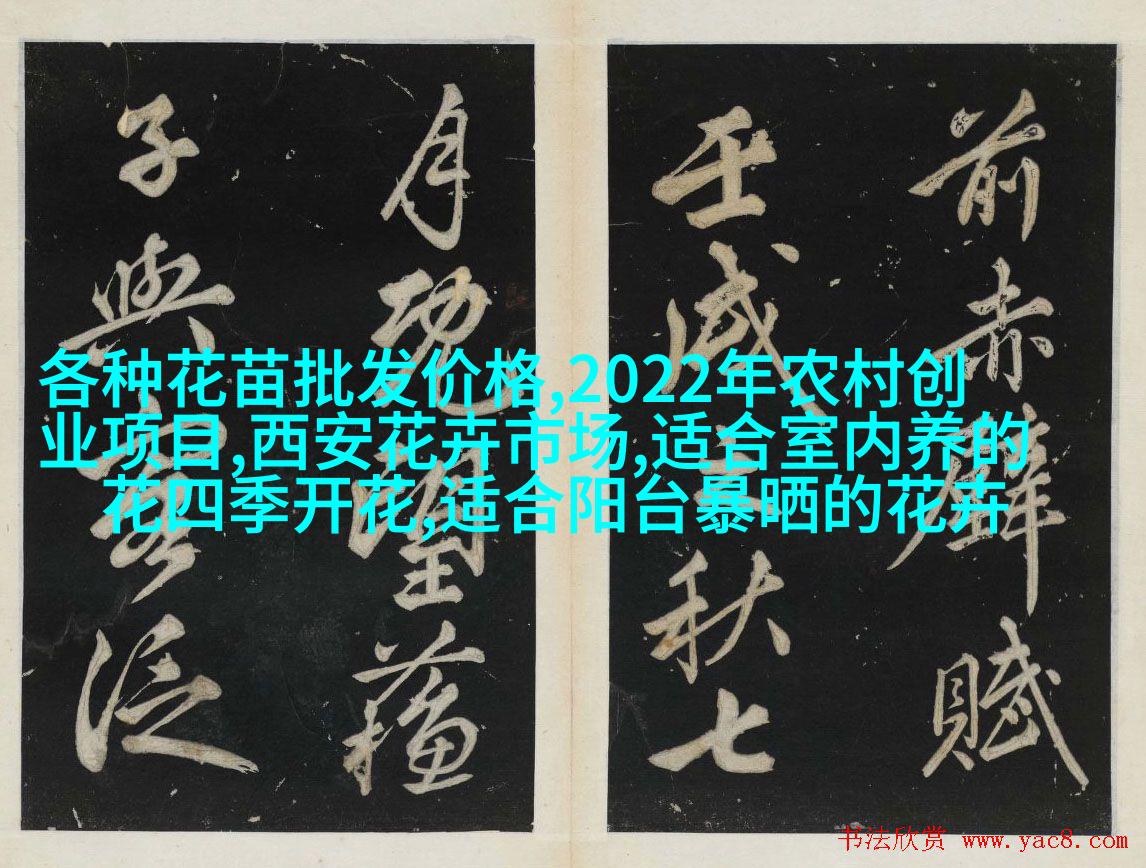 前赤壁賦
壬戌秋七
月既望蘇
子與客泛
各种花苗批发价格,2022年农村创
业项目,西安花卉市场,适合室内养的
花四季开花,适合阳台暴晒的花卉
书法欣赏 www.yac8.com